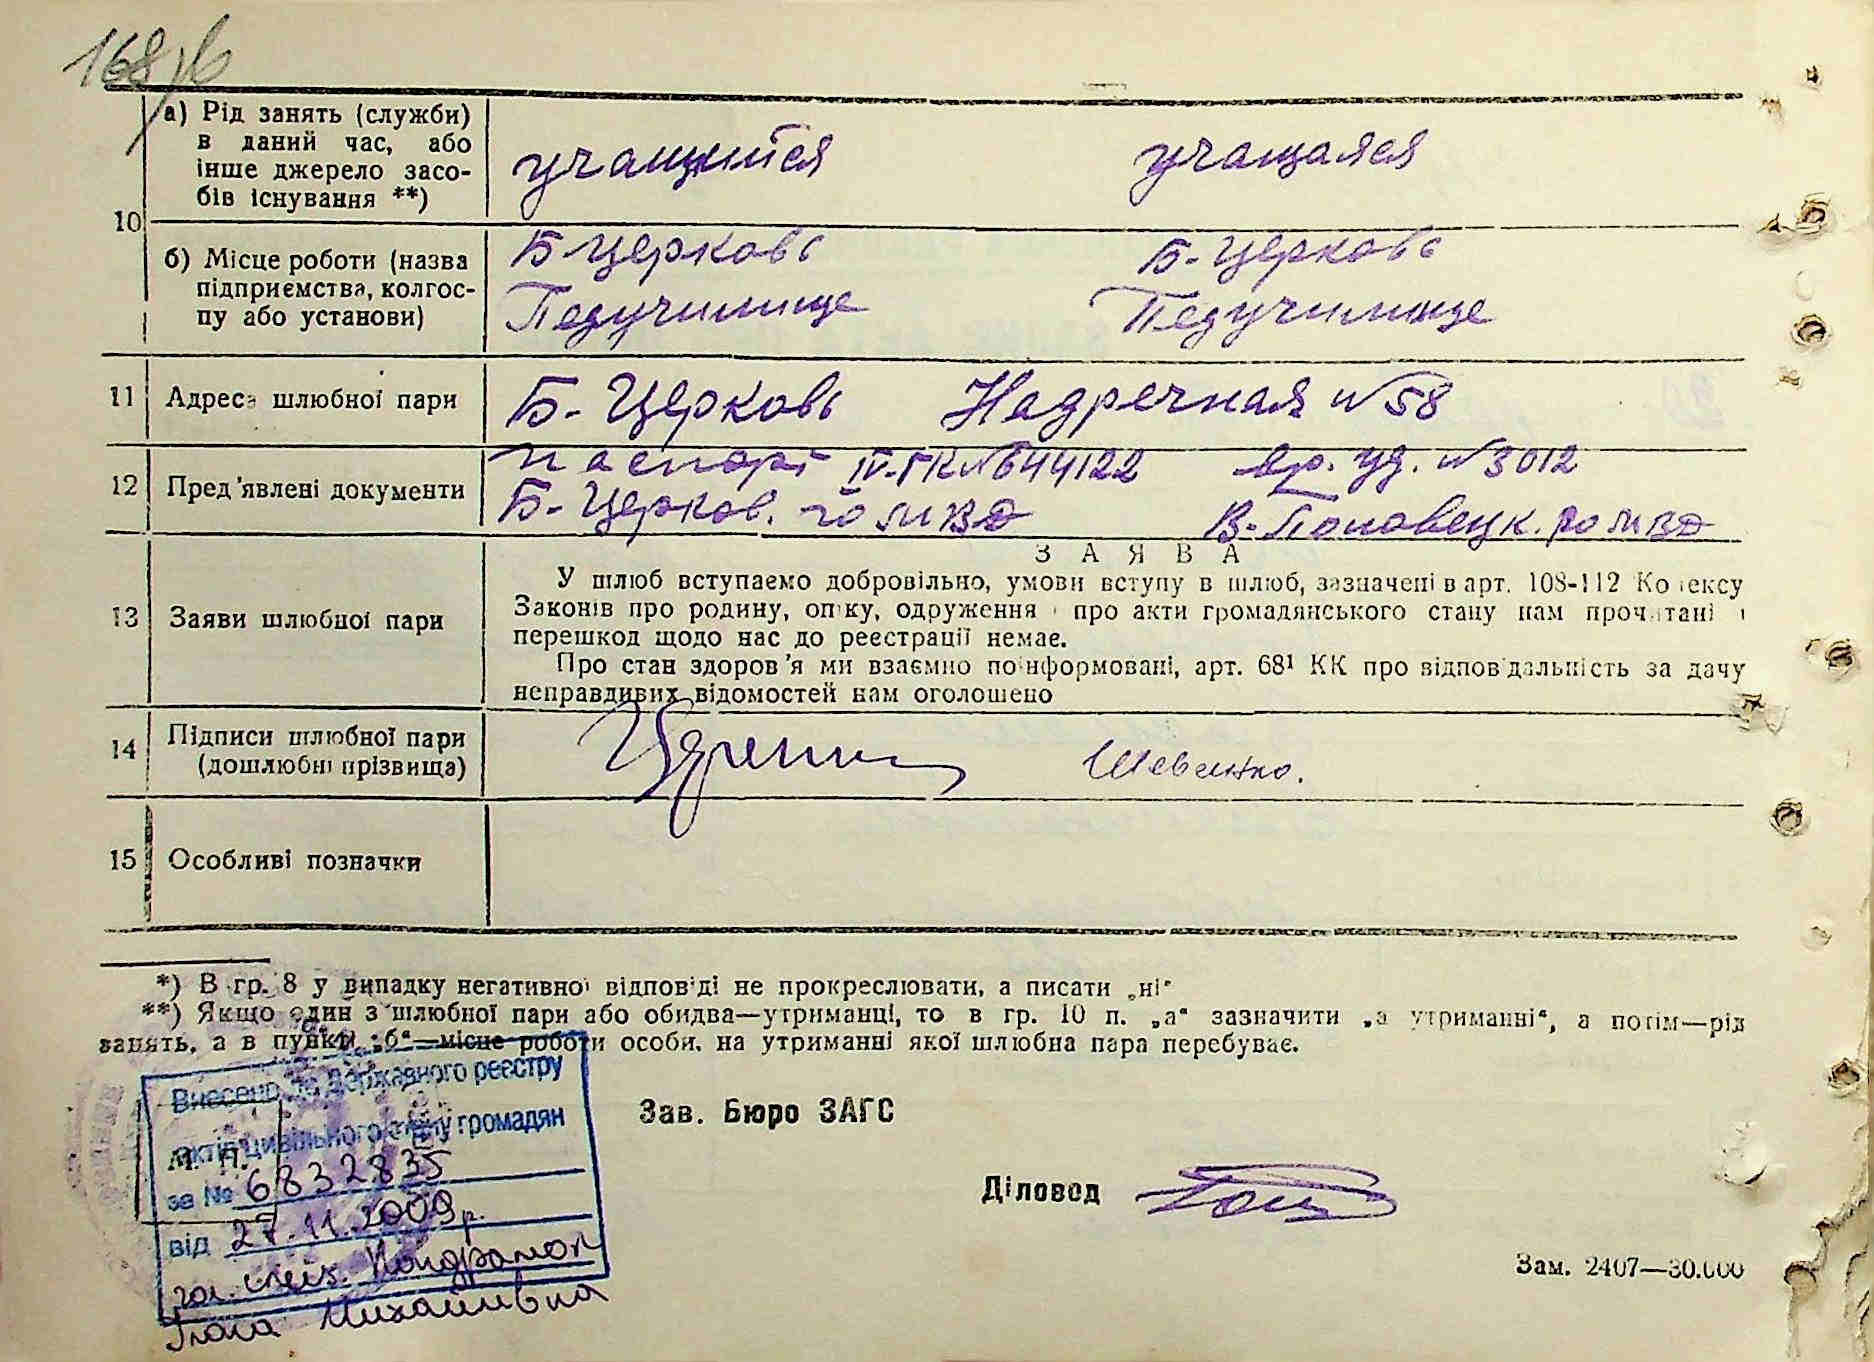 168
а) Рід занять (служби)
в даний час, або
інше джерело засо-
бів існування **)
учащийся учащаяся
10
б) Місце роботи (назва
підприємства, колгос-
пу або установи)
Б Церковь Б. Церковь
Педучилище Педучилище
11 Адреса шлюбної пари Б. Церковь Надречная №58
12 Пред'явлені документи
паспорт IV-ГК №644122 вр. уд. №3012
Б. Церков. ГОМВД В. Половецк. РОМВД
З А Я В А
13 Заяви шлюбної пари
У шлюб вступаємо добровільно, умови вступу в шлюб, зазначені в арт. 108-112 Кодексу
Законів про родину, опіку, одруження і про акти громадянського стану нам прочитані і
перешкод щодо нас до реєстрації немає.
Про стан здоров'я ми взаємно поінформовані, арт. 68¹ КК про відповідальність за дачу
неправдивих відомостей нам оголошено
14 Підписи шлюбної пари
(дошлюбні прізвища)
Шевченко.
15 Особливі позначки
*) В гр. 8 у випадку негативної відповіді не прокреслювати, а писати „ні“
**) Якщо один з шлюбної пари або обидва—утриманці, то в гр. 10 п. „а“ зазначити „а утриманні“, а потім—рід
занять, а в пункті „б“—місце роботи особи, на утриманні якої шлюбна пара перебуває.
Внесено до Державного реєстру
актів цивільного стану громадян
М. П.
за № 6832835
від 27.11.2009р.
гол. спец.
Михайлівна
Зав. Бюро ЗАГС
Діловод
Зам. 2407—30.000